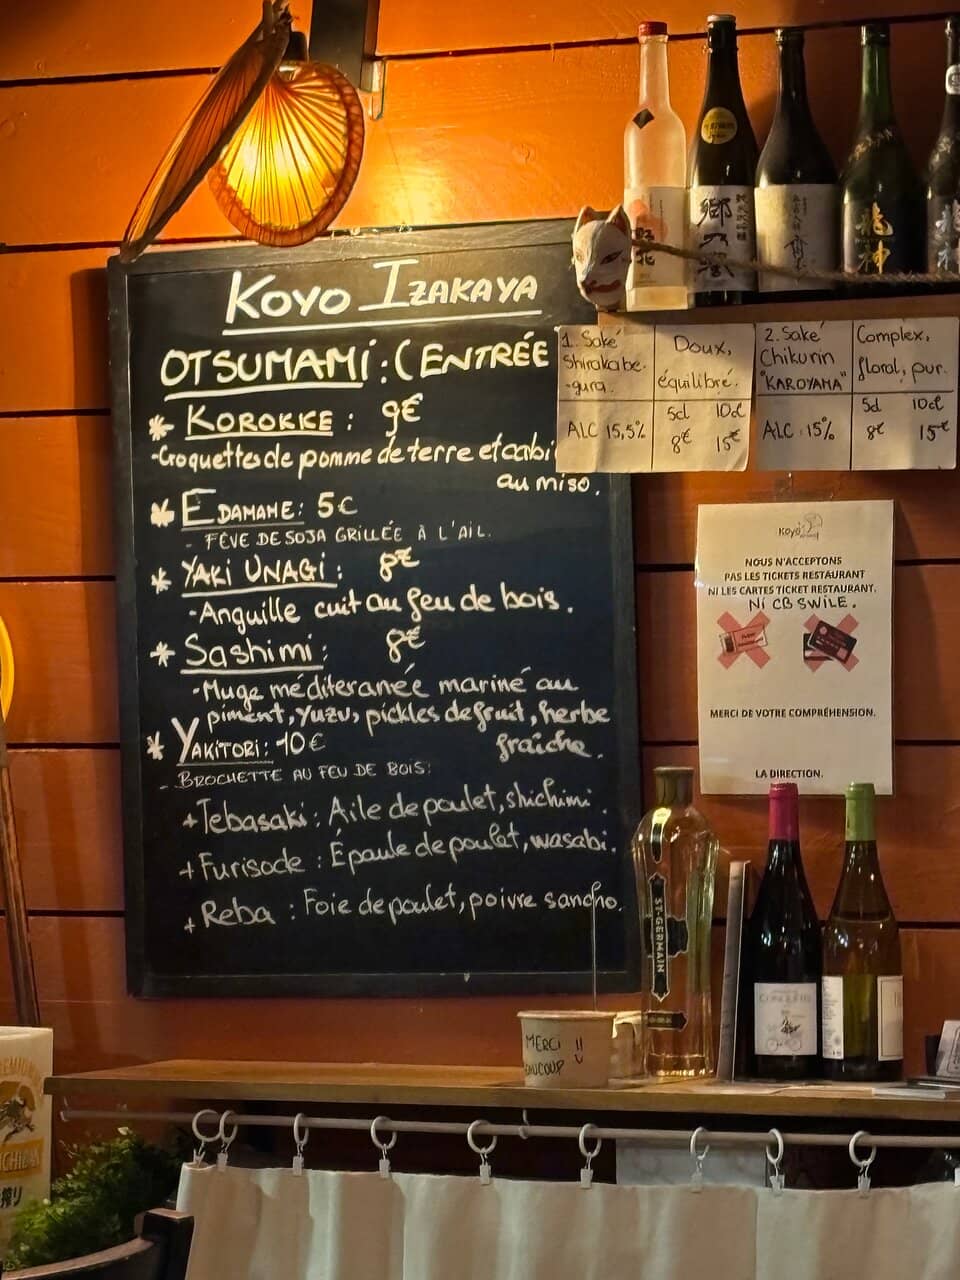 KOYO IZAKAYA
OTSUMAMI : (ENTRÉE
* KOROKKE : 9€
-Croquettes de pomme de terre et cabi
au miso.
* EDAMAME : 5€
- FÈVE DE SOJA GRILLÉE À L'AIL.
* YAKI UNAGI : 8€
-Anguille cuit au feu de bois.
* Sashimi : 8€
-Muge méditeranée mariné au
piment, yuzu, pickles de fruit, herbe
fraîche.
* YAKITORI : 10€
- BROCHETTE AU FEU DE BOIS:
+ Tebasaki : Aile de poulet, shichimi.
+ Furisode : Épaule de poulet, wasabi.
+ Reba : Foie de poulet, poivre sancho.
1. Saké
Shirakabe-
-gura.
Doux,
équilibré.
ALC 15,5%
5cl 10cl
8€ 15€
2. Saké
Chikurin
"KAROYAMA"
Complex,
floral, pur.
ALC : 15%
5cl 10cl
8€ 15€
KOYO
NOUS N'ACCEPTONS
PAS LES TICKETS RESTAURANT
NI LES CARTES TICKET RESTAURANT.
NI CB SWILE.
MERCI DE VOTRE COMPRÉHENSION.
LA DIRECTION.
郷乃誉
龍神
ST-GERMAIN
MERCI !!
BEAUCOUP
搾り